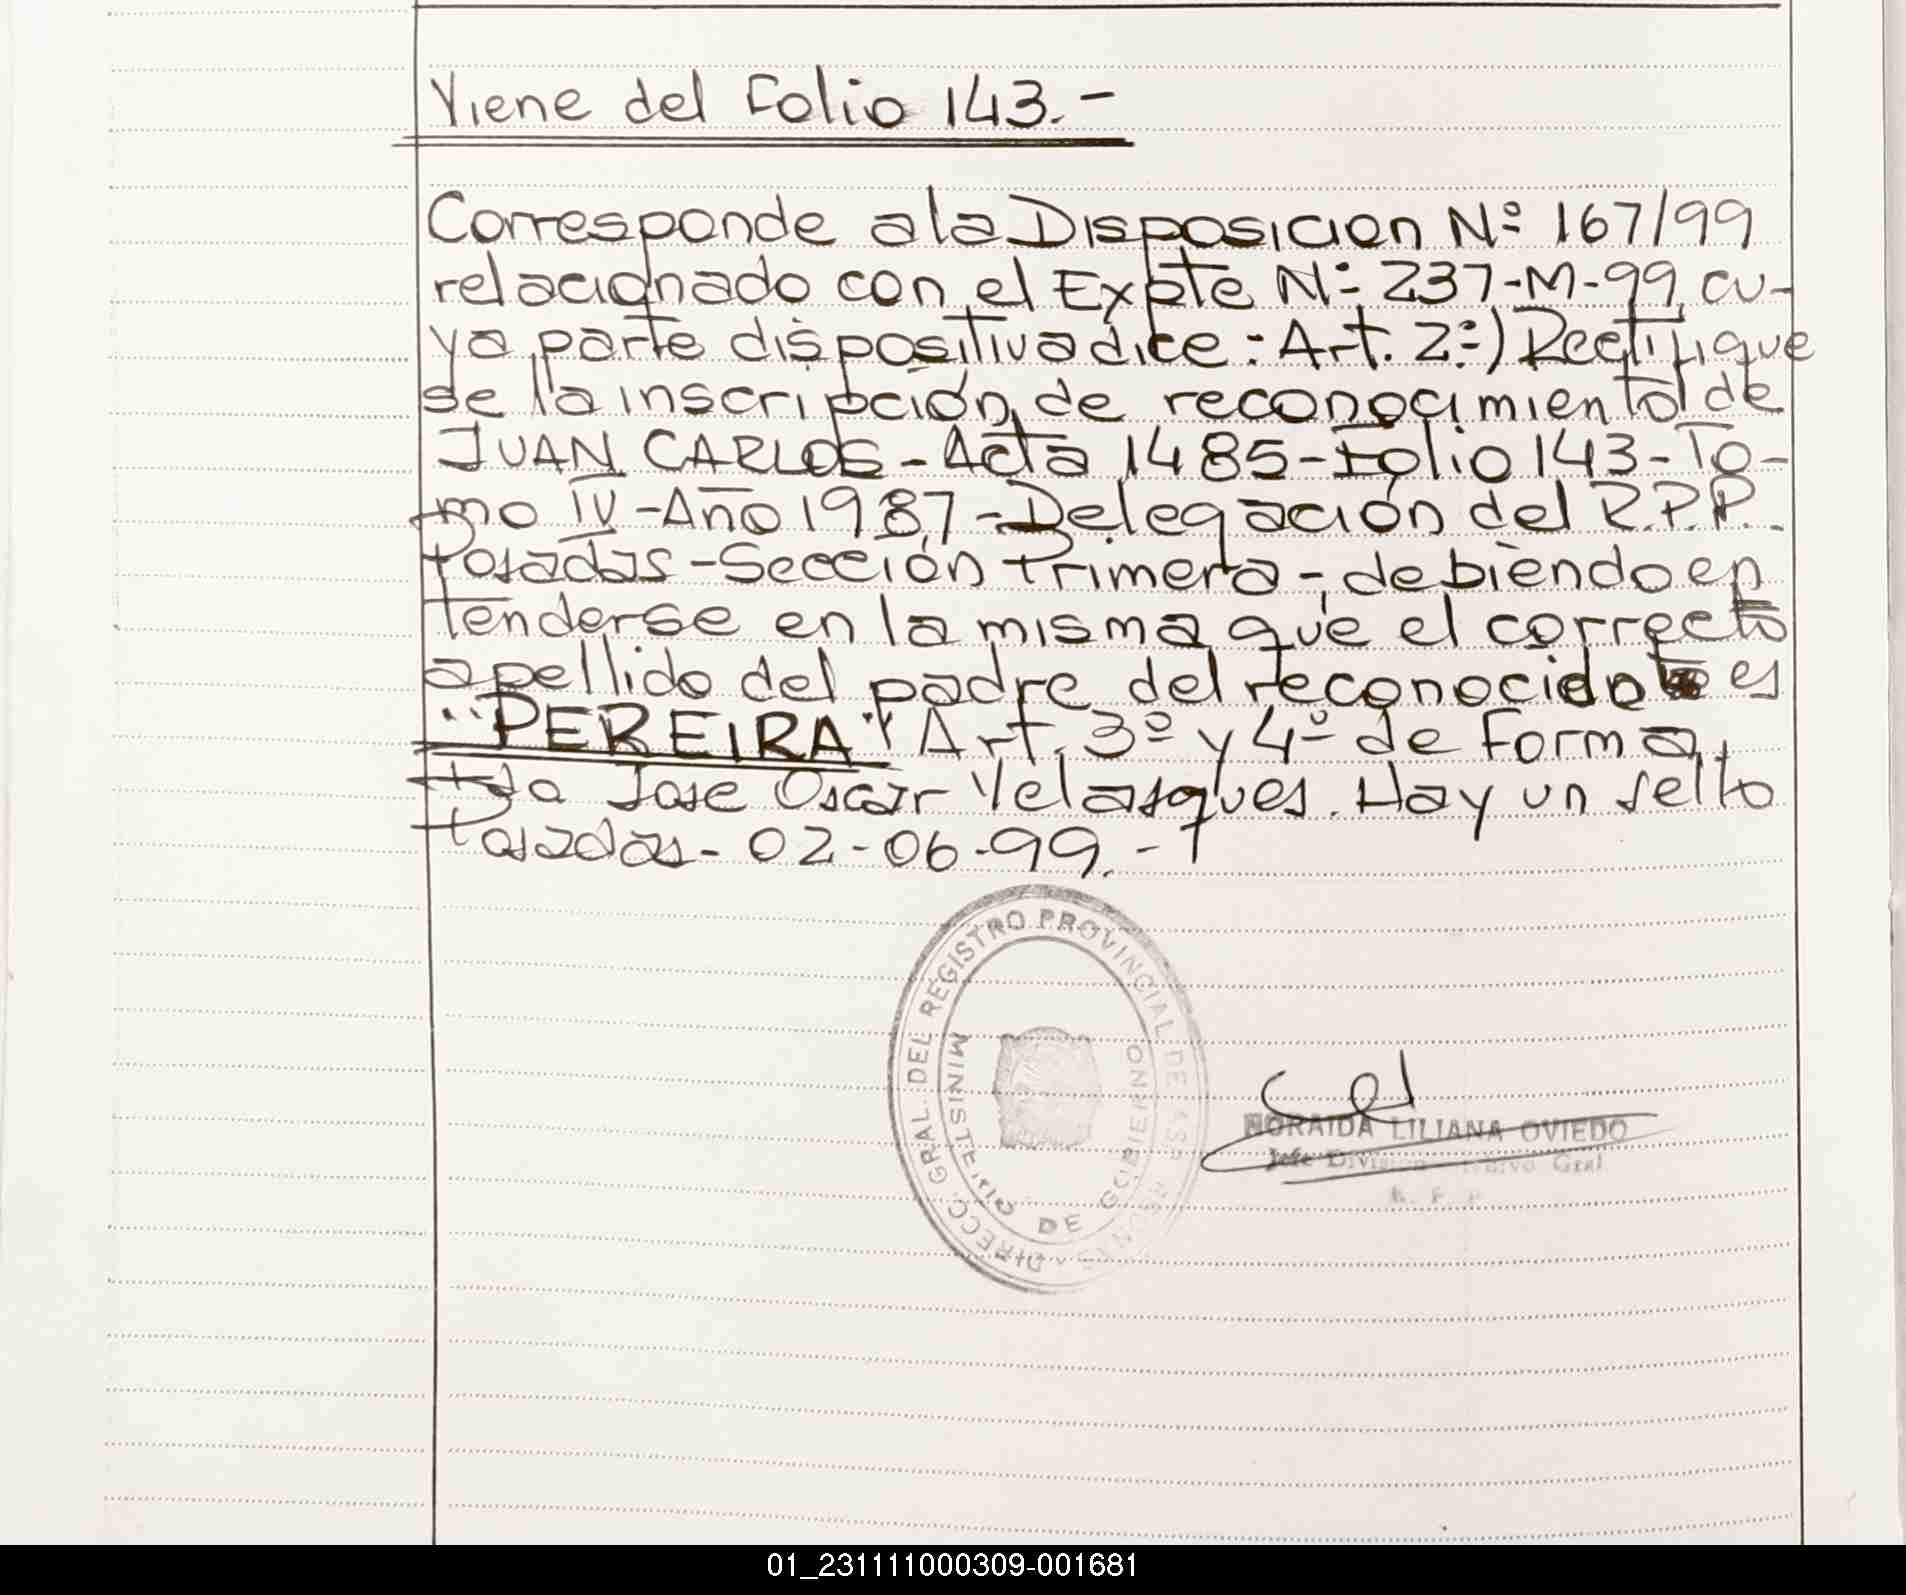 Viene del Folio 143.-
Corresponde a la Disposicion Nº 167/99
relacionado con el Expte Nº 237-M-99, cu-
ya parte dispositiva dice: Art. 2º) Rectifique
se la inscripción de reconocimiento de
JUAN CARLOS - Acta 1485 - Folio 143 - To-
mo IV - Año 1987 - Delegación del R.P.P.
Posadas - Sección Primera -, debiendo en
tenderse en la misma que el correcto
apellido del padre del reconocido es
"PEREIRA" Art. 3º y 4º de Forma,
Fda Jose Oscar Velasques. Hay un sello
Posadas - 02-06-99.-
DIRECC. GRAL. DEL REGISTRO PROVINCIAL DE LAS PERSONAS
MINISTERIO DE GOBIERNO
LILIANA OVIEDO
Jefe División Archivo Gral
R. P. P
01_231111000309-001681